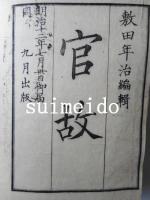 敷田年治編輯
官故
明治十二年七月 日御届
同 九月出版
suimeido